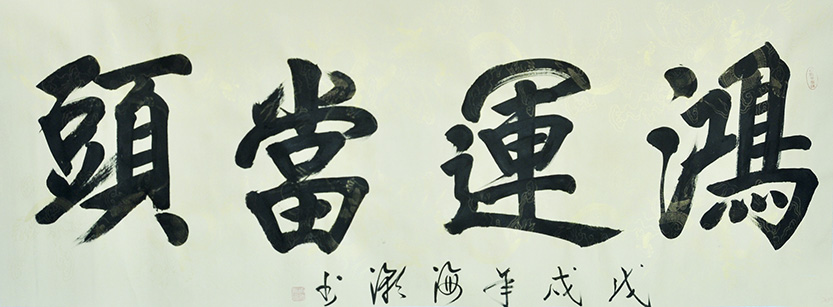 鴻運當頭
戊戌年海书